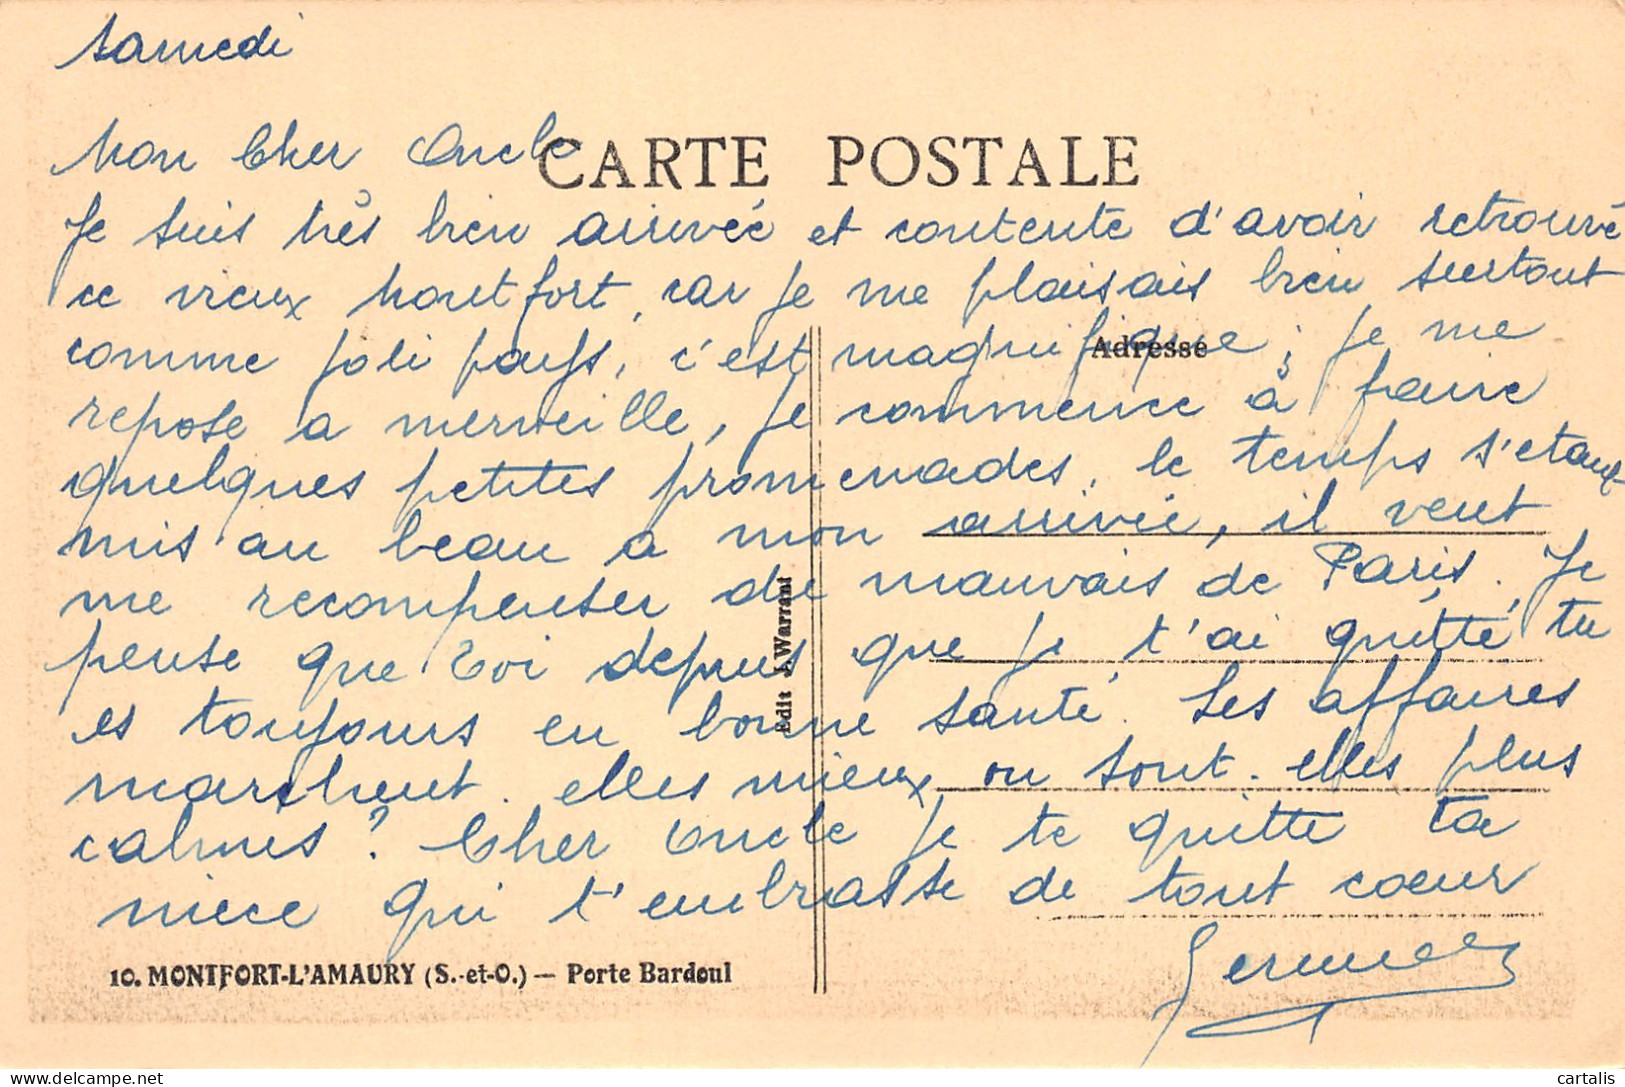 Samedi
Mon Cher Oncle
CARTE POSTALE
Je suis très bien arrivée et contente d'avoir retrouvé
ce vieux Montfort, car je me plaisais bien surtout
comme joli pays, c'est magnifique ; je me
Adresse
repose a merveille, je commence à faire
quelques petites promenades, le temps s'etant
mis au beau a mon arrivée, il veut
me recompenser du mauvais de Paris. Je
pense que toi depuis que je t'ai quitté, tu
es toujours en bonne santé. Les affaires
marchent. elles mieux ou sont. elles plus
calmes ? Cher Oncle je te quitte ta
niece qui t'embrasse de tout cœur
Edit J. Warrant
10. MONTFORT-L'AMAURY (S.-et-O.) — Porte Bardoul
cartalis